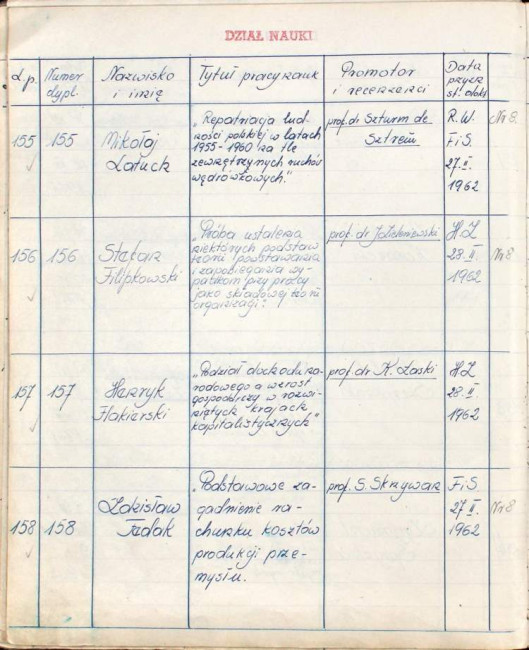 DZIAŁ NAUKI
L.p. Numer dypl. Nazwisko i imię Tytuł pracy nauk Promotor i recenzenci Data przyzn st. dokt
155 155 Mikołaj Latuch
„Repatriacja lud-
ności polskiej w latach
1955-1960 na tle
zewnętrznych ruchów
wędrówkowych."
prof. dr Szturm de
Sztrem
R.W.
F i S.
27.II.
1962
Nr 8
156 156 Stefan Filipkowski
„Próba ustalenia
niektórych podstaw
teorii powstawania
i zapobiegania wy-
padkom przy pracy
jako składowej teorii
organizacji".
prof. dr J. Zieleniewski
H Z
28.II.
1962
Nr 8
157 157 Henryk Flakierski
„Podział dochodu na-
rodowego a wzrost
gospodarczy w rozwi-
niętych krajach
kapitalistycznych"
prof. dr K. Łaski
H Z
28.II.
1962
158 158 Zdzisław Fedak
„Podstawowe za-
gadnienie ra-
chunku kosztów
produkcji prze-
mysłu.
prof. S. Skrzywan
F i S.
27.II.
1962
Nr 8